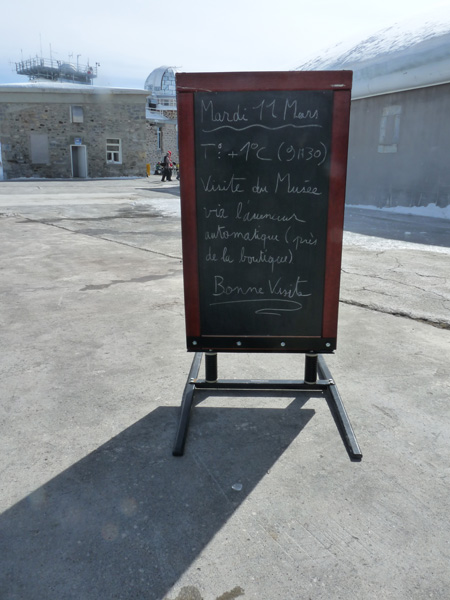 Mardi 11 Mars
T°: +1°C (9h30)
Visite du Musée
via l'ascenseur
automatique (près
de la boutique)
Bonne Visite